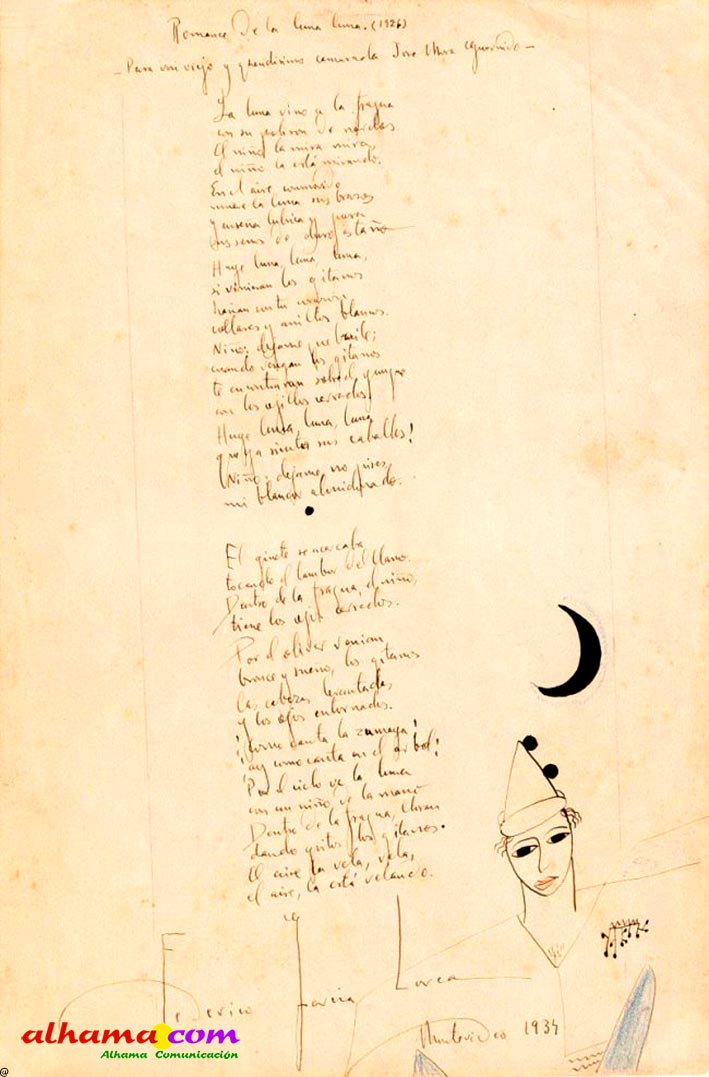 Romance de la luna luna. (1926)
- Para un viejo y queridisimo camarada José Mora Guarnido -
La luna vino a la fragua
con su polison de nardos
el niño la mira mira
el niño la está mirando.
En el aire conmovido
mueve la luna sus brazos
y enseña lubrica y pura
sus senos de duro estaño
Huye luna, luna, luna,
si vinieran los gitanos
harian con tu corazon
collares y anillos blancos.
Niño: dejame que baile;
cuando vengan los gitanos
te encontraran sobre el yunque
con los ojillos cerrados
Huye luna, luna, luna
que ya siento sus caballos!
Niño: dejame, no pises,
mi blancor almidonado.
El ginete se acercaba
tocando el tambor del llano.
Dentro de la fragua, el niño,
tiene los ojos cerrados.
Por el olivar venian,
bronce y sueño, los gitanos
las cabezas levantadas
y los ojos entornados.
¡Como canta la zumaya!
¡ay como canta en el arbol!
Por el cielo va la luna
con un niño de la mano
Dentro de la fragua, lloran
dando gritos los gitanos.
El aire la vela, vela,
el aire, la está velando.
Federico García Lorca
Montevideo 1934
alhama.com
Alhama Comunicación
@